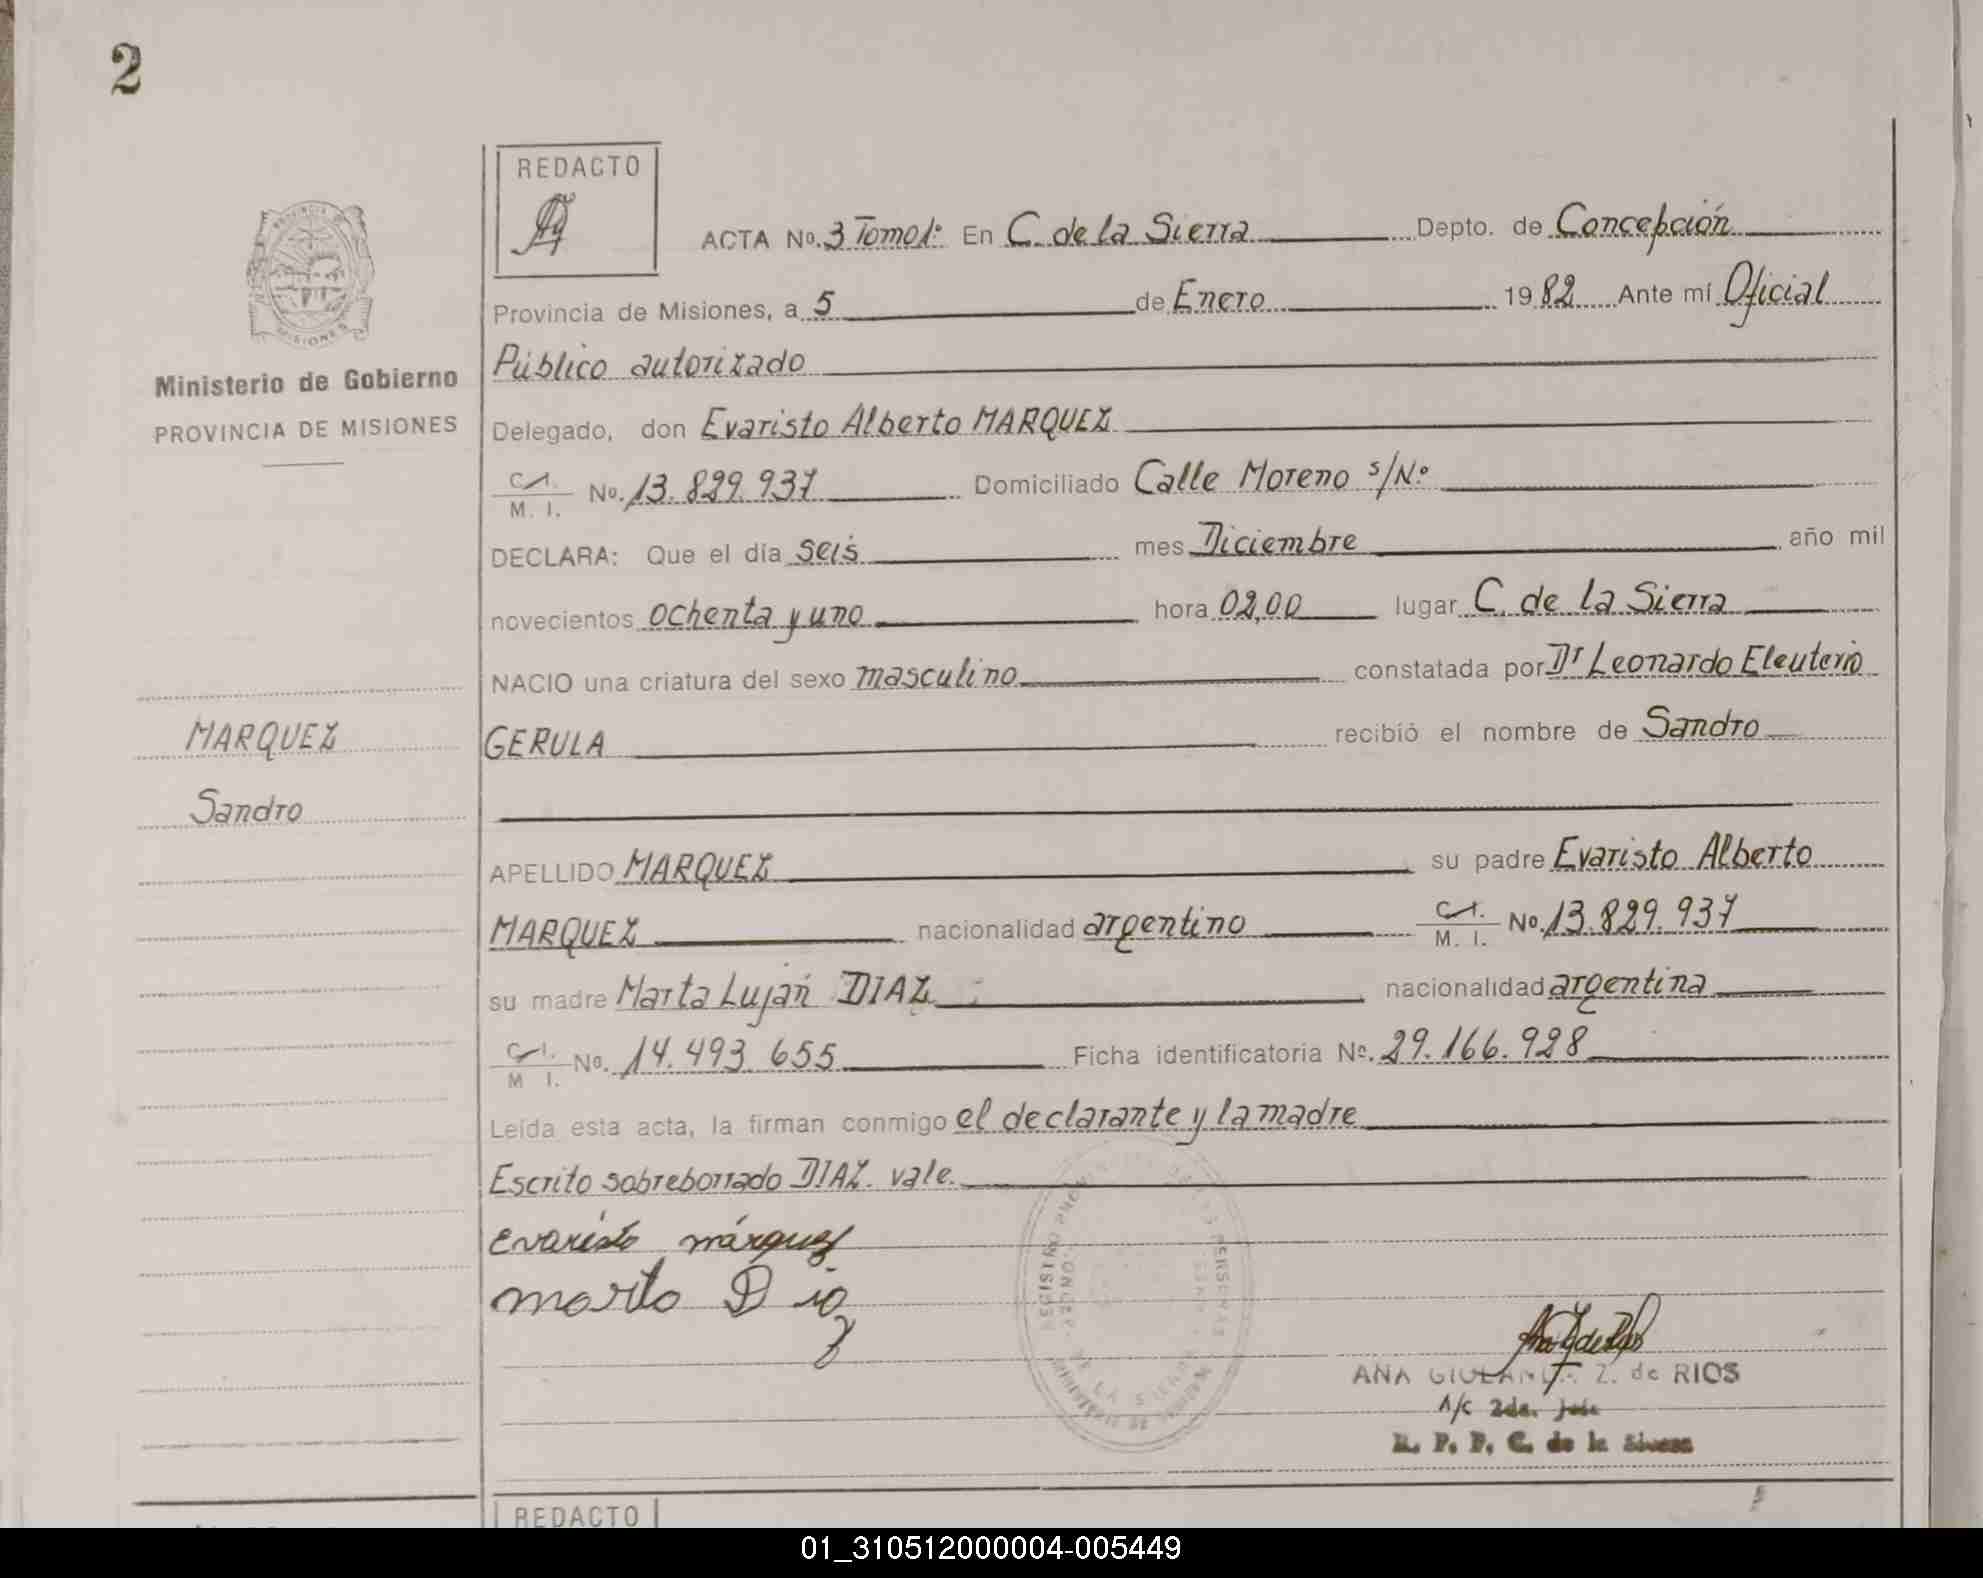 2
REDACTO
ACTA No. 3 Tomo 1º En C. de la Sierra Depto. de Concepción
Provincia de Misiones, a 5 de Enero 1982 Ante mí Oficial
Público autorizado
Delegado, don Evaristo Alberto MARQUEZ
C.I.
M. I. No. 13.829.937 Domiciliado Calle Moreno s/Nº
DECLARA: Que el día seis mes Diciembre año mil
novecientos ochenta y uno hora 02,00 lugar C. de la Sierra
NACIO una criatura del sexo masculino constatada por Dr Leonardo Eleuterio
GERULA recibió el nombre de Sandro
APELLIDO MARQUEZ su padre Evaristo Alberto
MARQUEZ nacionalidad argentino C.I.
M. I. No. 13.829.937
su madre Marta Luján DIAZ nacionalidad argentina
C.I.
M I. No. 14.493.655 Ficha identificatoria Nº. 29.166.928
Leída esta acta, la firman conmigo el declarante y la madre
Escrito sobreborrado DIAZ. vale.
Evaristo márquez
marta Diaz
ANA Z. de RIOS
A/C 2da. Jefe
R. P. P. C. de la Sierra
PROVINCIA DE
MISIONES
Ministerio de Gobierno
PROVINCIA DE MISIONES
MARQUEZ
Sandro
REDACTO
01_310512000004-005449